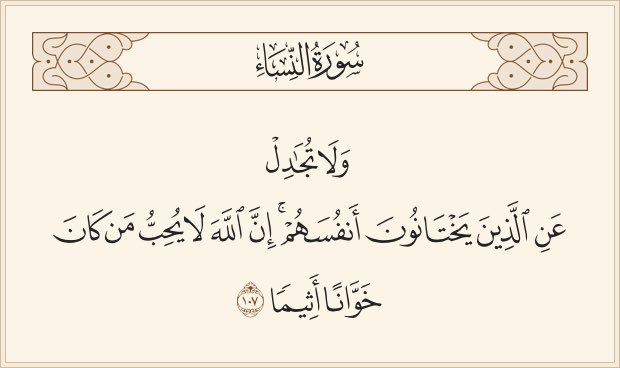 سُورَةُ النِّسَاءِ
وَلَا تُجَٰدِلْ
عَنِ ٱلَّذِينَ يَخْتَانُونَ أَنفُسَهُمْ ۚ إِنَّ ٱللَّهَ لَا يُحِبُّ مَن كَانَ
خَوَّانًا أَثِيمًا ١٠٧